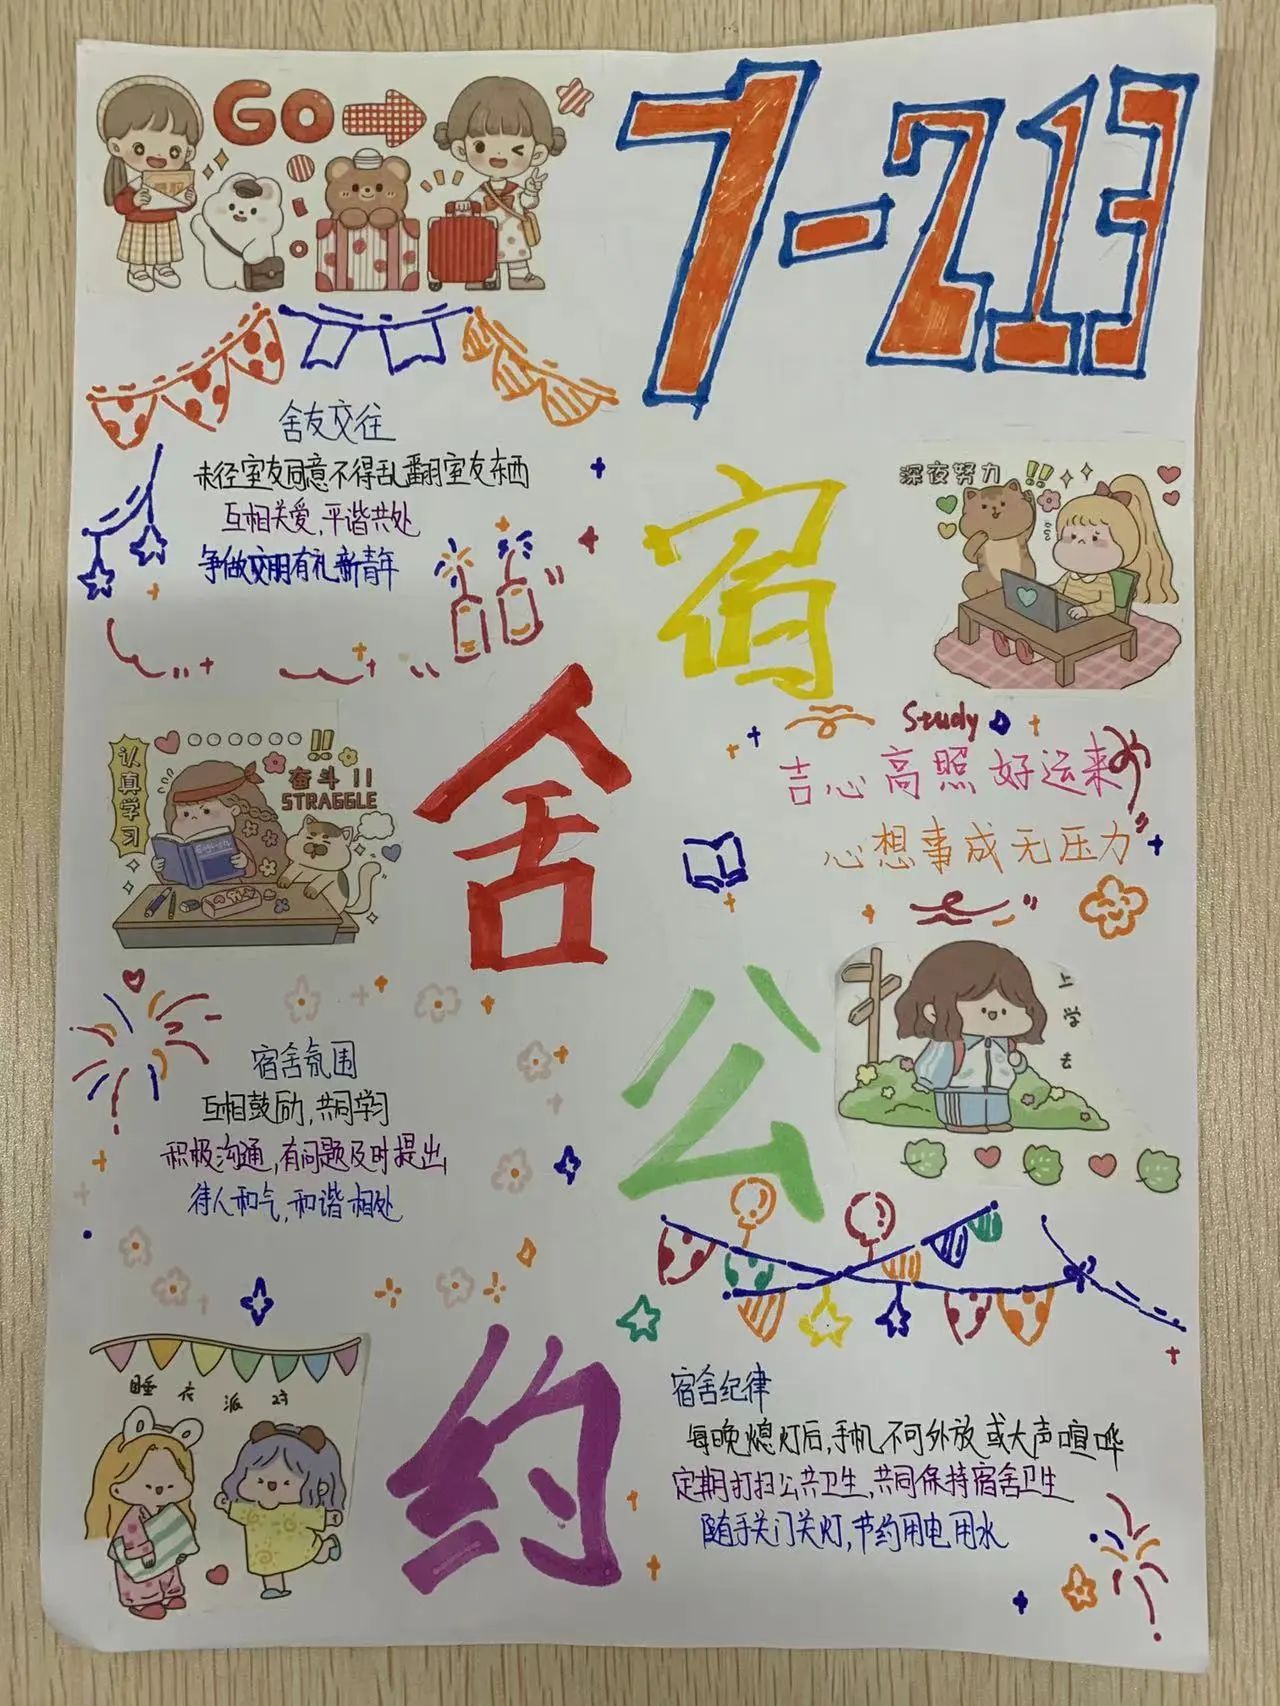 GO
7-213
舍友交往
未经室友同意不得乱翻室友东西
互相关爱,平谐共处
争做文明有礼新青年
宿
深夜努力!!
Study
吉心高照好运来
心想事成无压力
舍
认真学习
!!
奋斗!!
STRAGGLE
English
宿舍氛围
互相鼓励,共同学习
积极沟通,有问题及时提出
待人和气,和谐相处
公
上学去
睡衣派对
约
宿舍纪律
每晚熄灯后,手机不可外放或大声喧哗
定期打扫公共卫生,共同保持宿舍卫生
随手关门关灯,节约用电用水